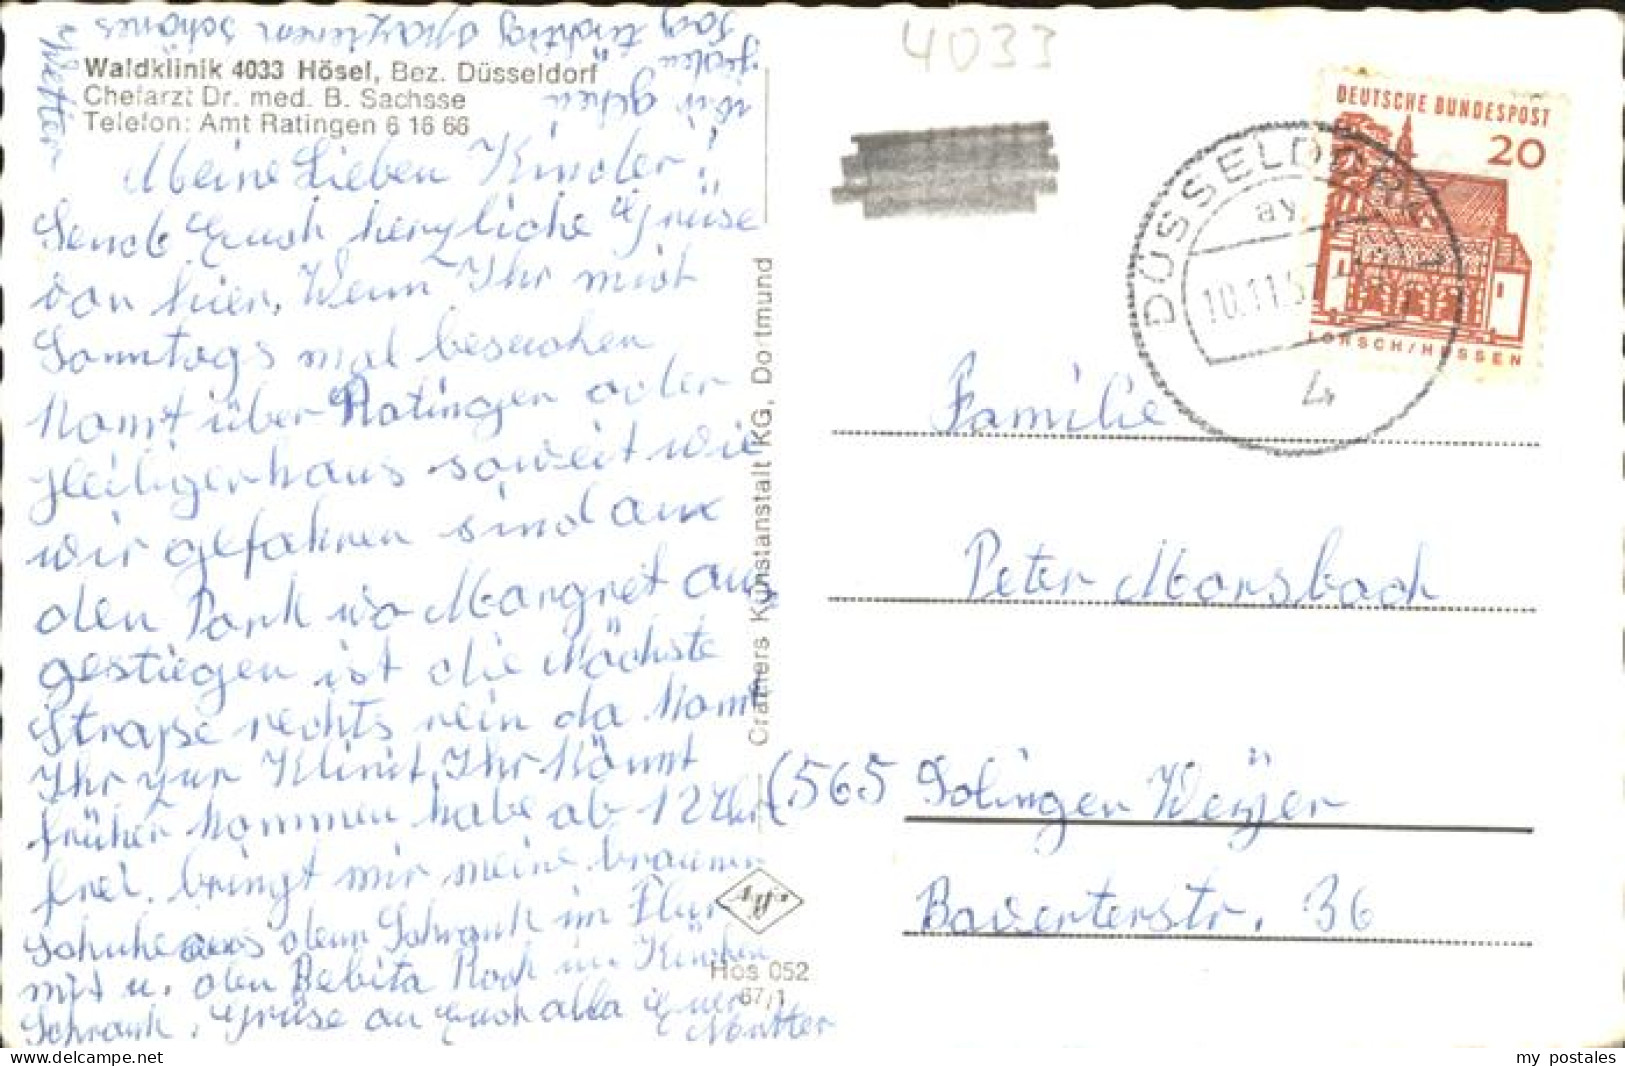 Waldklinik 4033 Hösel, Bez. Düsseldorf
Chefarzt Dr. med. B. Sachsse
Telefon: Amt Ratingen 6 16 66
Meine Lieben Kinder!
Sende Euch herzliche Grüse
von hier. Wenn Ihr mich
Sonntags mal besuchen
Komt über Ratingen oder
Heiligenhaus soweit wie
wir gefahren sind an
den Park wo Margret aus
gestiegen ist die Nächste
Straße rechts rein da Komt
Ihr zur Klinik, Ihr Könnt
früher Kommen habe ab 12 Uhr
frei. bringt mir meine braunen
Schuhe aus dem Schrank im Flur
mit u. den Bebita Koch im Küchen
Schrank. Grüse an Euch alla Euer
Mutter
wir gehen
jeden
Tag tüchtig spazieren schönes
Wetter
Cramers Kunstanstalt KG, Dortmund
Agfa
Hos 052
67/1
4033
DEUTSCHE BUNDESPOST
20
LORSCH/HESSEN
DÜSSELDORF
ay
10.11.6
4
Familie
Peter Morsbach
(565 Solingen Weyer
Baverterstr. 36
my postales